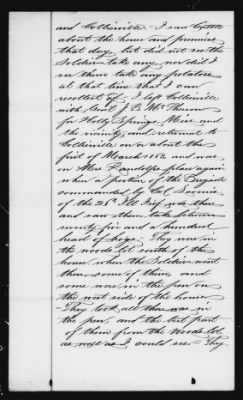 and Collierville. I saw Cotton
about the house and premises
that day, but did not see the
Soldiers take any, nor did I
see them take any potatoes
at that time that I can
recollect of. I left Collierville
with Genl J. B. McPherson
for Holly Springs, Miss and
the vicinity and returned to
Collierville on or about the
first of March 1863 and was
on Mrs. Randolfs place again
when a portion of the Brigade
commanded by Col Loomis
of the 26th Ill Inf was there
and saw them take between
seventy five and a hundred
head of hogs. They were in
the woods lot south of the
house when the Soldiers went
there, some of them, and
some were in the pen on
the west side of the house.
They took all there was in
the pen, and the best part
of them from the Woods lot
as near as I could see. They